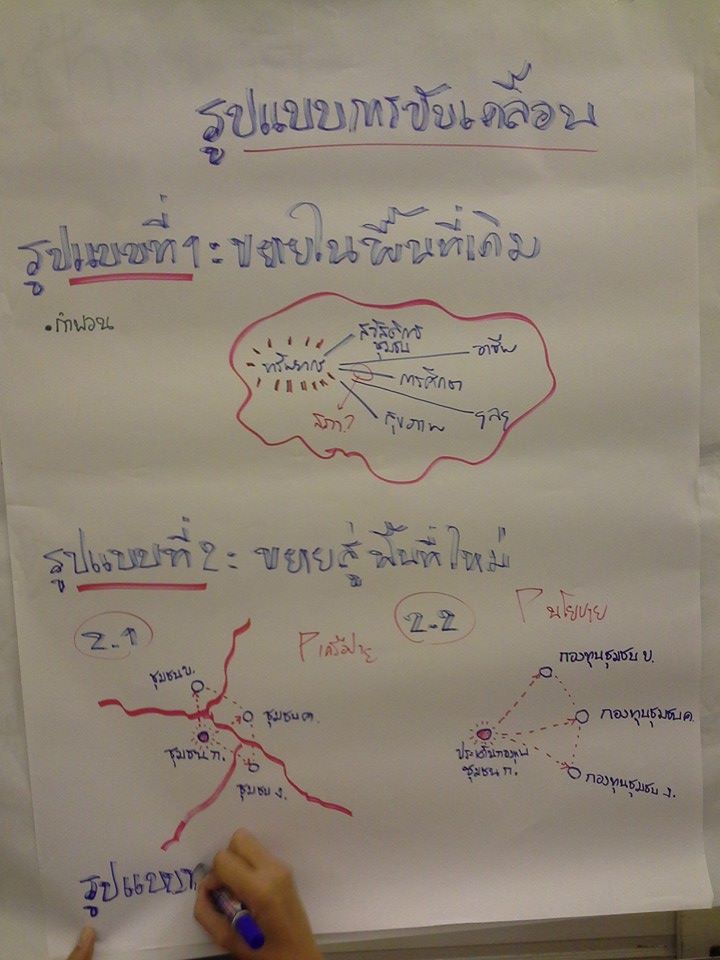 รูปแบบการขับเคลื่อน
รูปแบบที่ 1 : ขยายในพื้นที่เดิม
• กำพวน
สวัสดิการ
ชุมชน
ทรัพยากร
อาชีพ
การศึกษา
สุขภาพ
ฯลฯ
รูปแบบที่ 2 : ขยายสู่พื้นที่ใหม่
2.1
P เครือข่าย
ชุมชน ข.
ชุมชน ค.
ชุมชน ก.
ชุมชน ง.
2.2
P นโยบาย
กองทุนชุมชน ข.
กองทุนชุมชน ค.
ประเด็นกองทุน
ชุมชน ก.
กองทุนชุมชน ง.
รูปแบบ